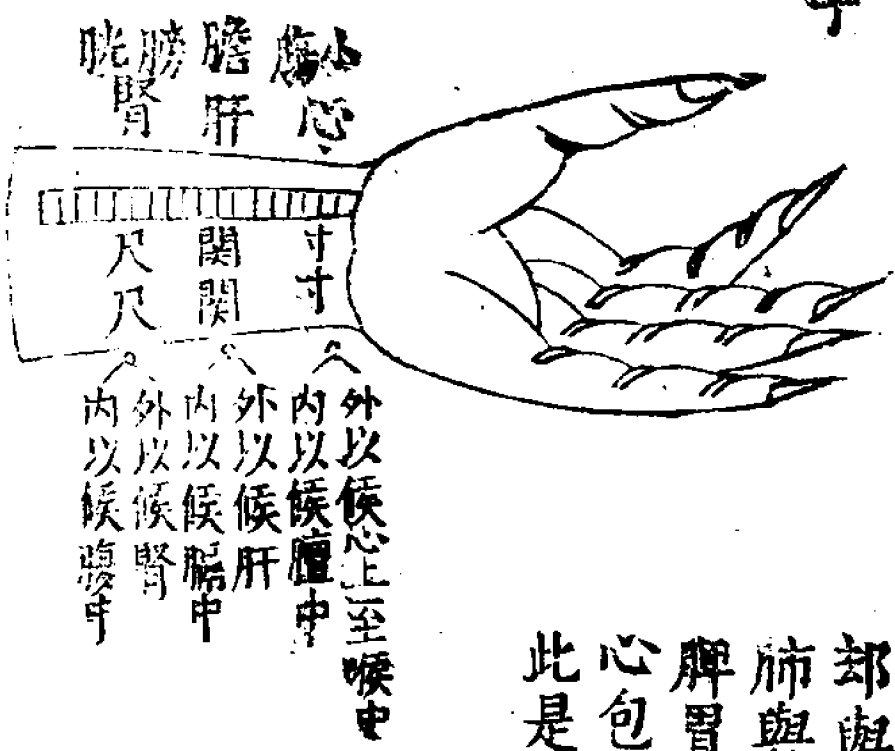 小膓
心
膽
肝
膀胱
腎
寸寸
関関
尺尺
外以候心上至喉中
内以候膻中
外以候肝
内以候膈中
外以候腎
内以候腹中
與
肺與
脾胃
心包
此是